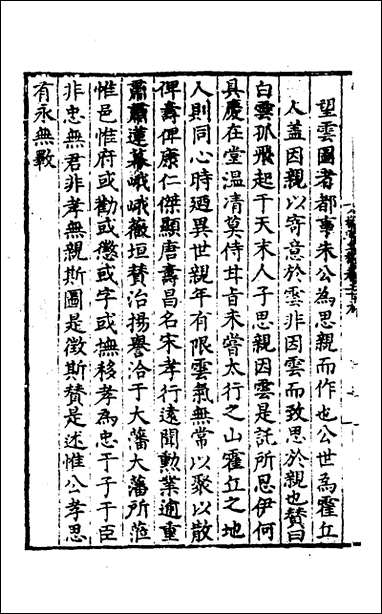 望雲圖者都事朱公為思親而作也公世為霍丘
人蓋因親以寄意於雲非因雲而致思於親也贊曰
白雲孤飛起于天末人子思親因雲是託所思伊何
具慶在堂溫凊莫侍甘旨未嘗太行之山霍丘之地
人則同心時廼異世親年有限雲氣無常以聚以散
俾壽俾康仁傑顯唐壽昌名宋孝行遠聞勲業逾重
肅肅蓮幕峨峨薇垣贊治揚譽洽于大藩大藩所蒞
惟邑惟府或勸或懲或字或撫移孝為忠于子于臣
非忠無君非孝無親斯圖是徵斯贊是述惟公孝思
有永無斁